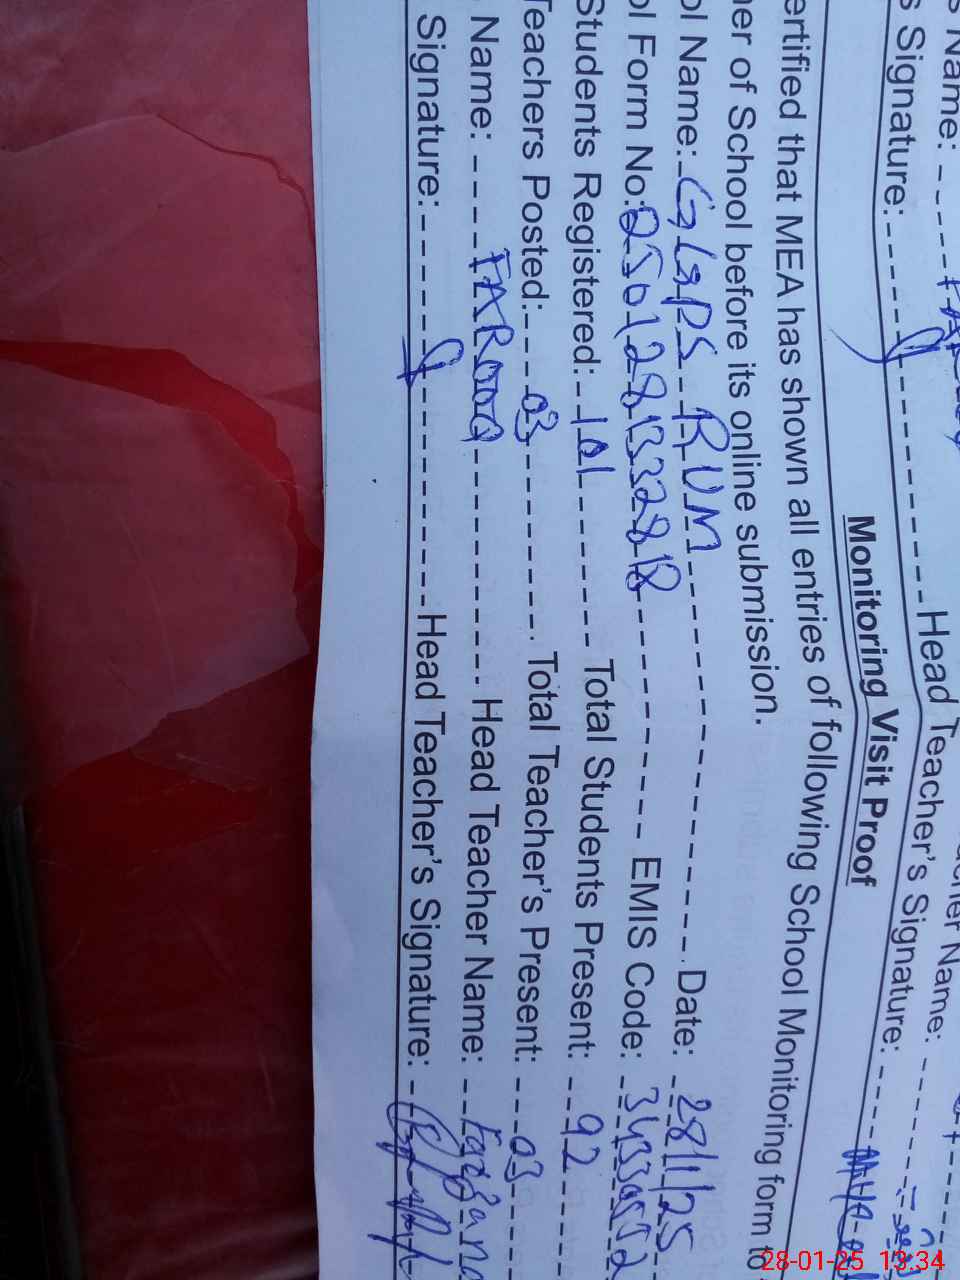 s Name: ----
s Signature: --------- Head Teacher's Signature: ----
Monitoring Visit Proof
ertified that MEA has shown all entries of following School Monitoring form to
ner of School before its online submission.
ol Name: GGPS RUM -------- Date: 28/1/25
ol Form No: 2501281332818 -------- EMIS Code: 34330552
Students Registered: 101 ------ Total Students Present: 92
Teachers Posted: 03 -------- Total Teacher's Present: 03
Name: ---- FAROOQ -------- Head Teacher Name: -- Farzana
Signature: -------- Head Teacher's Signature: --
28-01-25 13:34